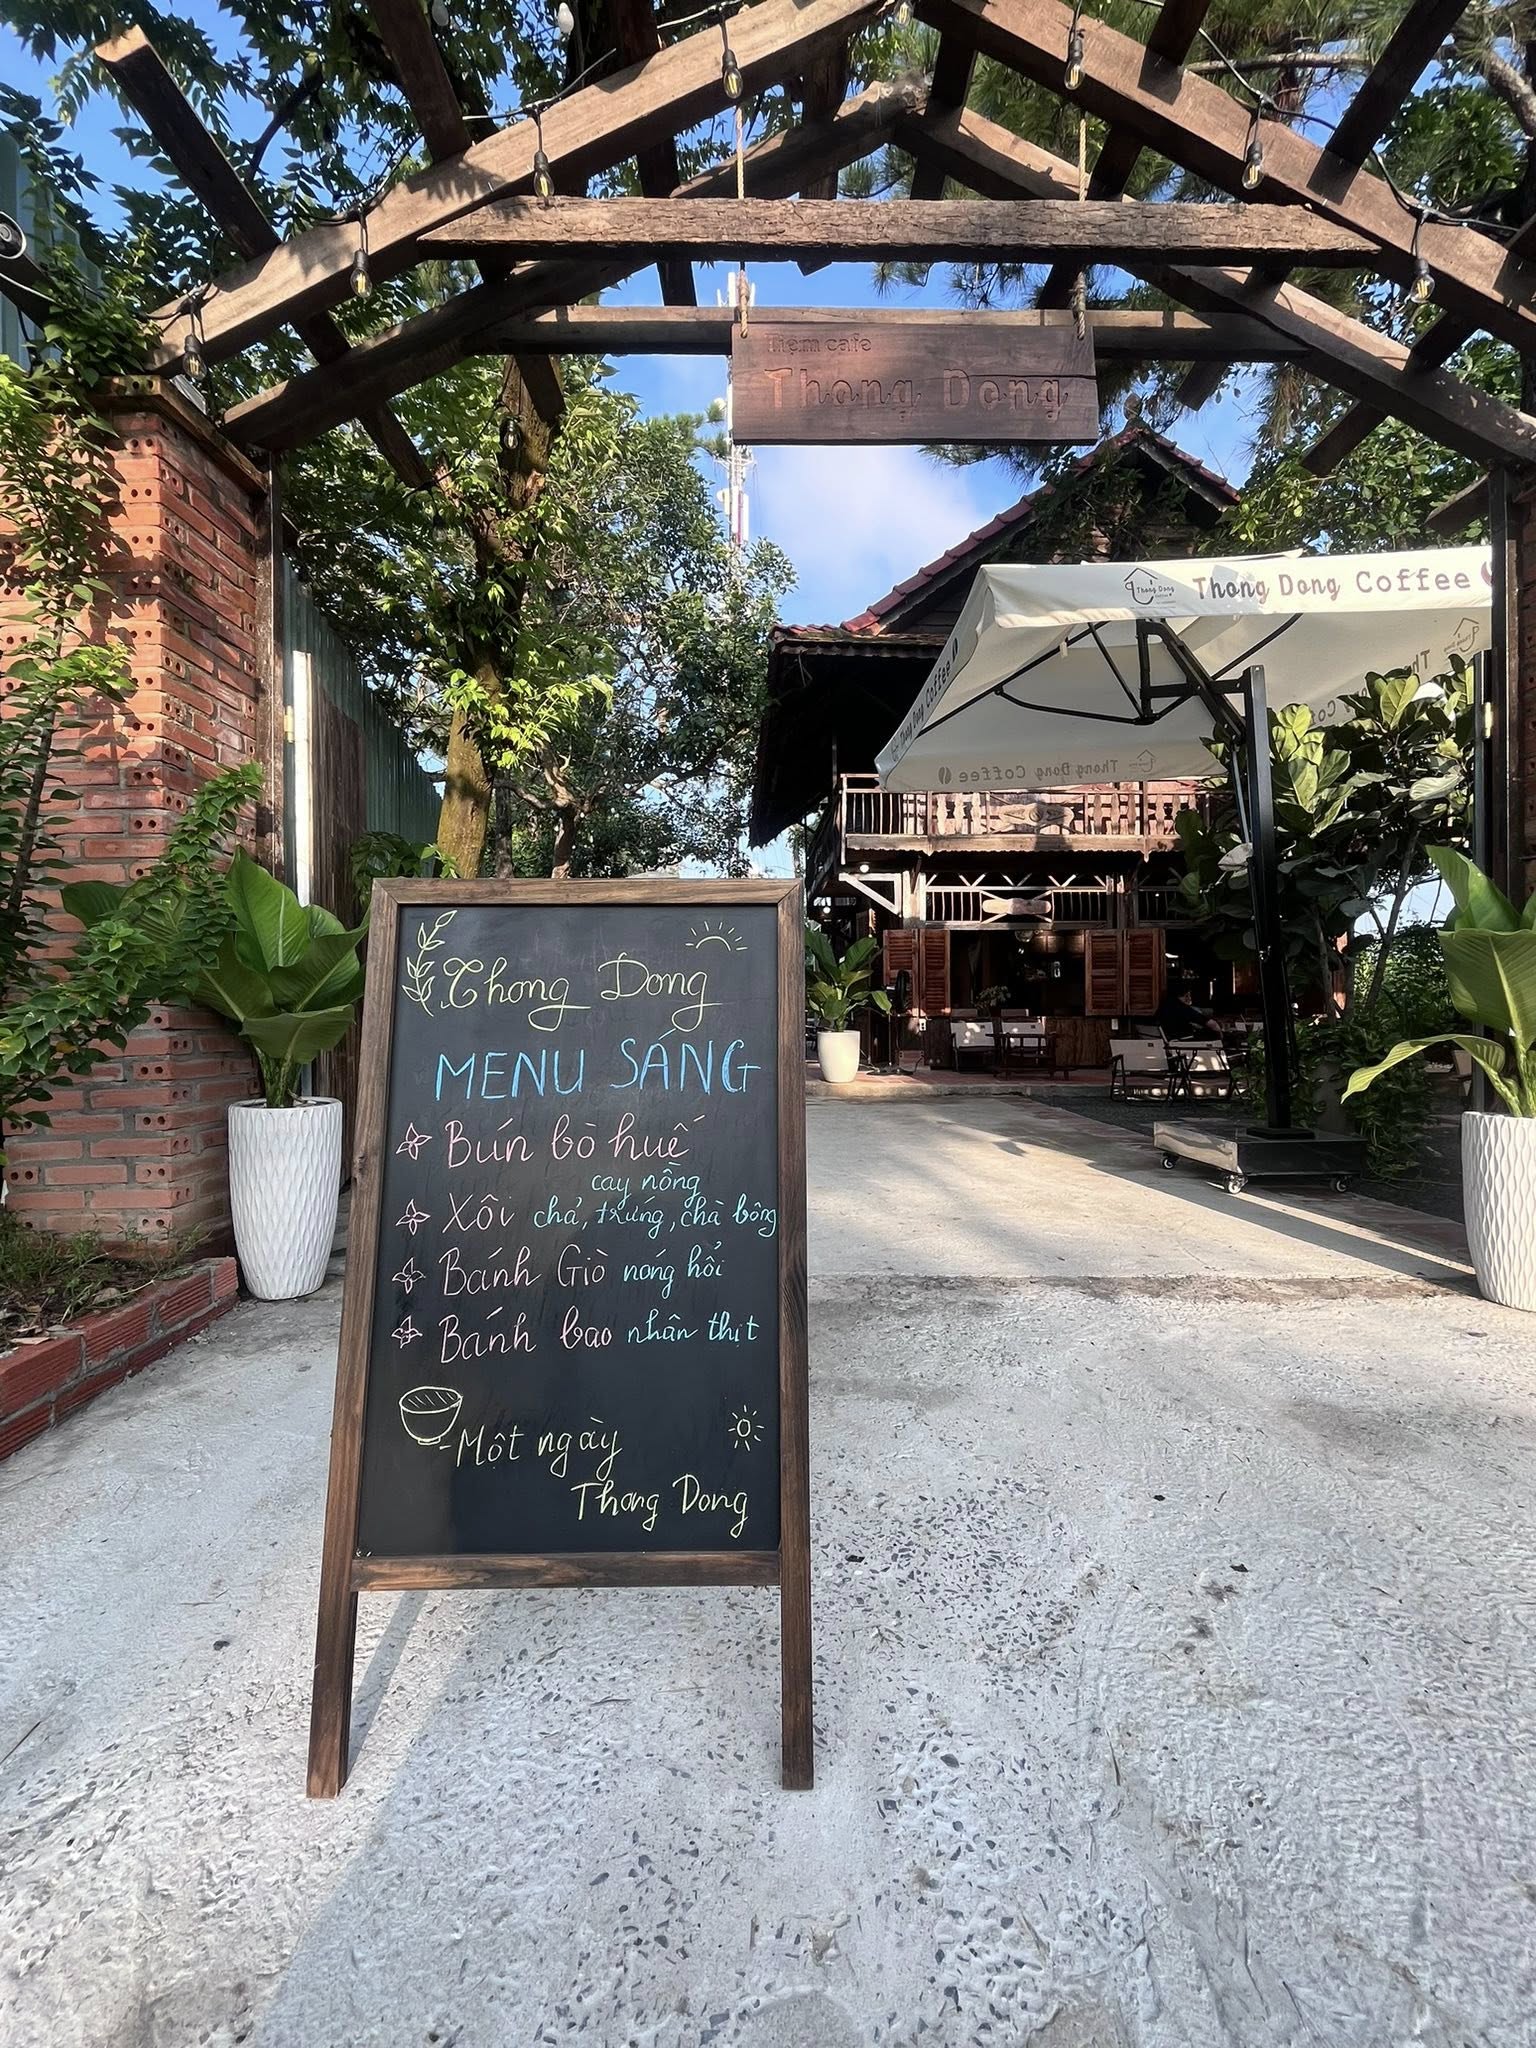 Tiệm cafe
Thong Dong
Thong Dong Coffee
Thong Dong
Thong Dong Coffee
Thong Dong Coffee
Thong Dong
MENU SÁNG
Bún bò huế
cay nồng
Xôi chả, trứng, chà bông
Bánh Giò nóng hổi
Bánh bao nhân thịt
Một ngày
Thong Dong